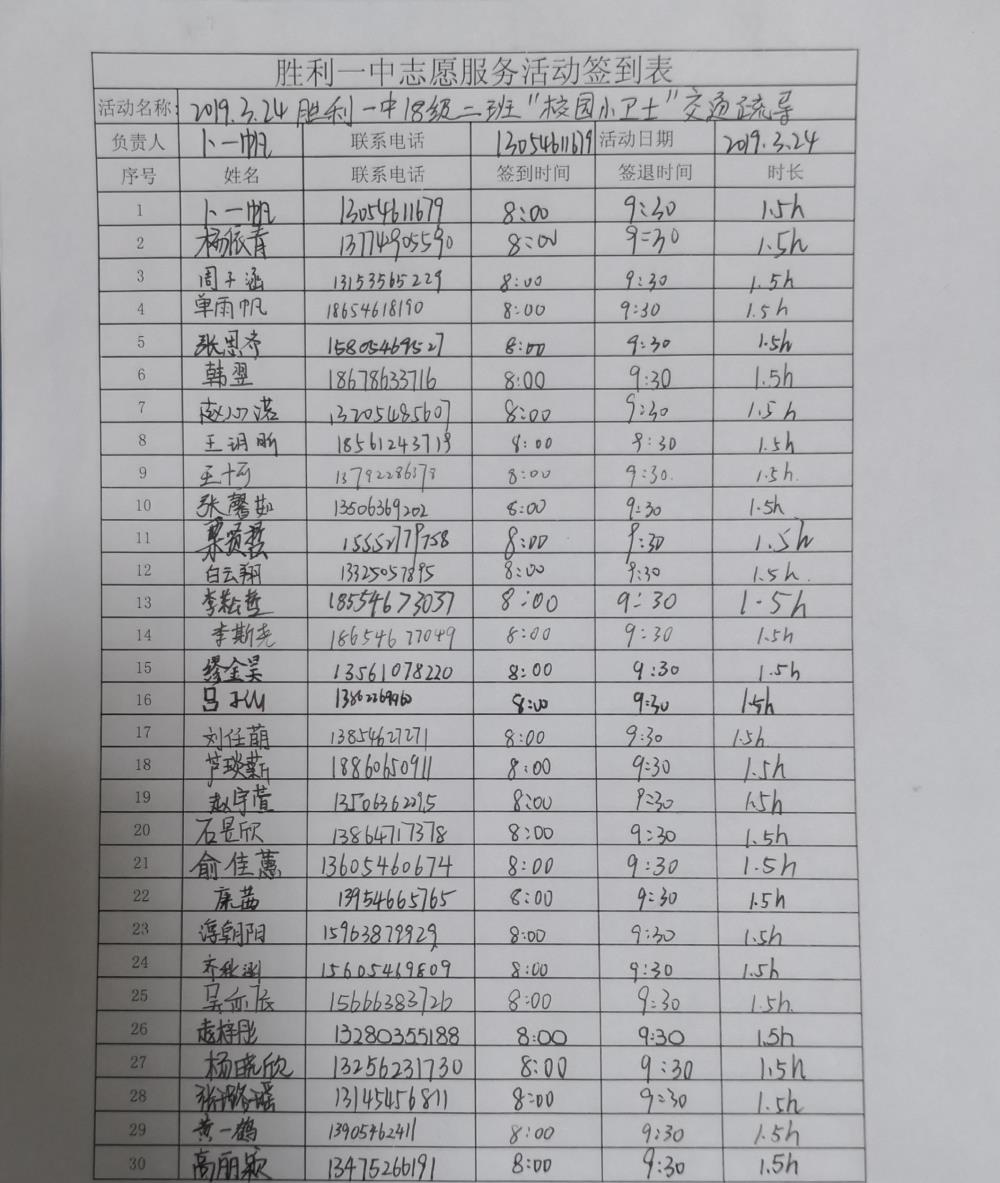 胜利一中志愿服务活动签到表
活动名称: 2019.3.24 胜利一中18级二班"校园小卫士"交通疏导
负责人 卜一帆 联系电话 13054611679 活动日期 2019.3.24
序号 姓名 联系电话 签到时间 签退时间 时长
1 卜一帆 13054611679 8:00 9:30 1.5h
2 杨依青 13774905590 8:00 9:30 1.5h
3 周子涵 13153565229 8:00 9:30 1.5h
4 单雨帆 18654618190 8:00 9:30 1.5h
5 张思齐 15805469527 8:00 9:30 1.5h
6 韩翌 18678633716 8:00 9:30 1.5h
7 赵心诺 13205485607 8:00 9:30 1.5h
8 王玥昕 18561243719 8:00 9:30 1.5h
9 13792286378 8:00 9:30. 1.5h.
10 张馨茹 13506369202 8:00 9:30 1.5h.
11 15552779758 8:00 9:30 1.5h
12 白云翔 13325057895 8:00 9:30 1.5h.
13 18554673037 8:00 9:30 1.5h
14 李斯尧 18654677049 8:00 9:30 1.5h
15 缪金昊 13561078220 8:00 9:30 1.5h
16 8:00 9:30 1.5h
17 刘任萌 13854627271 8:00 9:30 1.5h
18 芦琰薪 18860650911 8:00 9:30 1.5h
19 赵宇萱 13506362295 8:00 9:30 1.5h
20 石昱欣 13864717378 8:00 9:30 1.5h
21 俞佳蕙 13605460674 8:00 9:30 1.5h
22 康茜 13954665765 8:00 9:30 1.5h
23 15963879929 8:00 9:30 1.5h
24 15605469809 8:00 9:30 1.5h
25 吴亦辰 15666383726 8:00 9:30 1.5h
26 13280355188 8:00 9:30 1.5h
27 杨晓欣 13256231730 8:00 9:30 1.5h
28 张璐瑶 13145456811 8:00 9:30 1.5h
29 黄一鹤 13905462411 8:00 9:30 1.5h
30 高丽颖 13475266191 8:00 9:30 1.5h